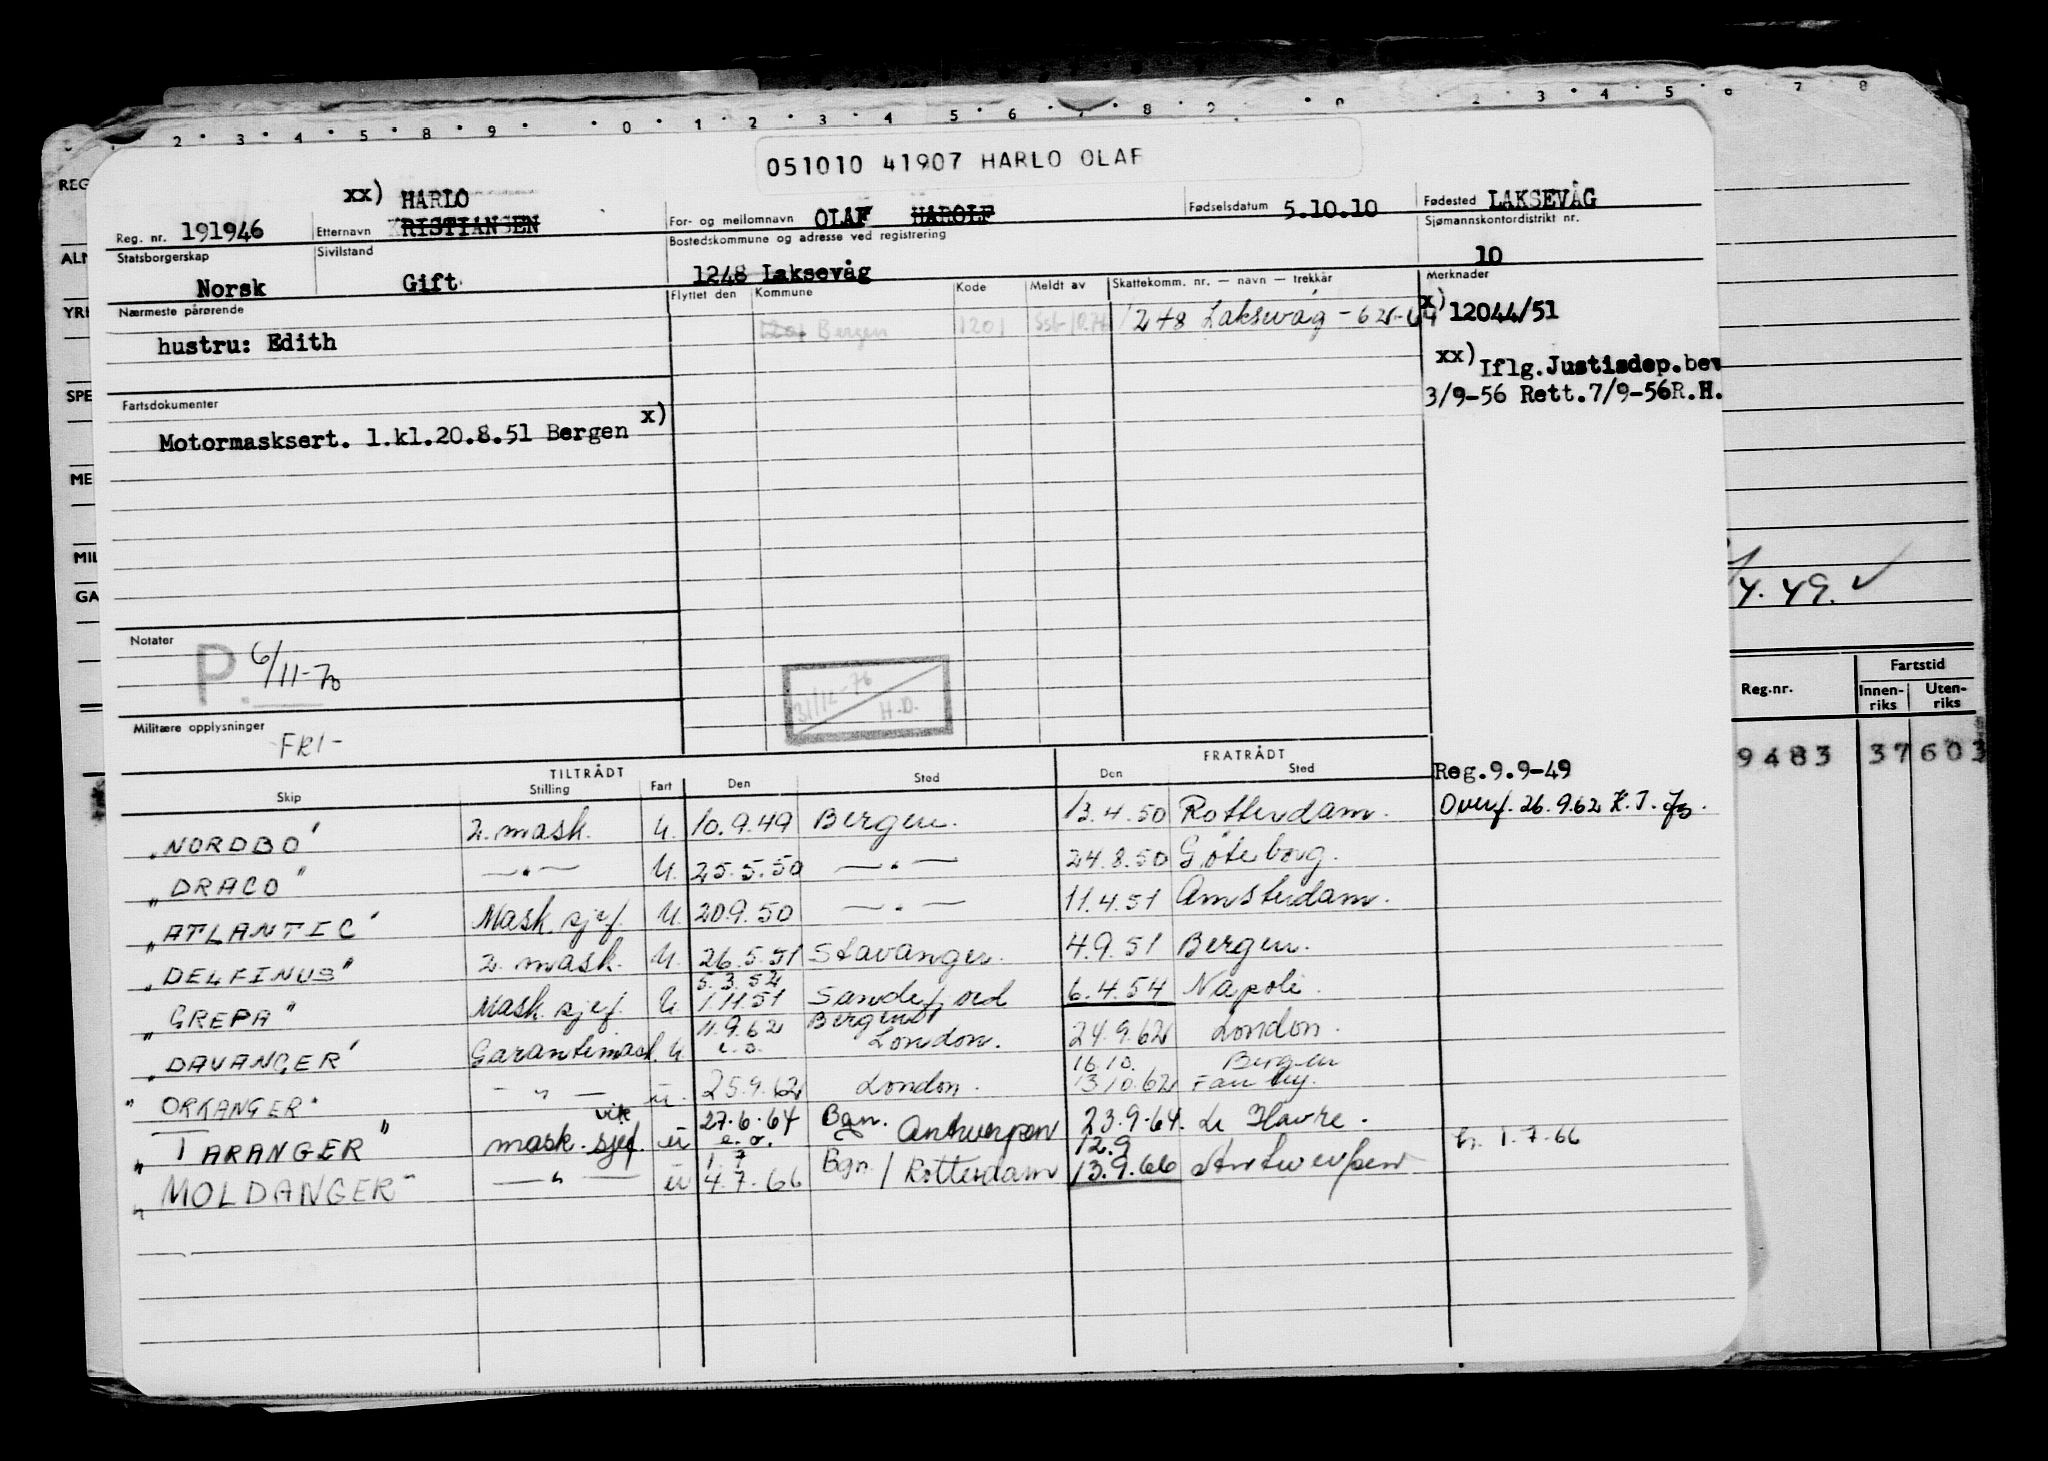 2 3 4 5 8 9 0 1 2 3 4 5 6 7 8 9 0 2 3 4 5 6 7 8
051010 41907 HARLO OLAF
Reg. nr. 191946 Etternavn xx) HARLO KRISTIANSEN For- og mellomnavn OLAF HAROLF Fødselsdatum 5.10.10 Fødested LAKSEVÅG
Statsborgerskap Norsk Sivilstand Gift Bostedskommune og adresse ved registrering 1248 Laksevåg Sjømannskontordistrikt nr. 10
Nærmeste pårørende Flyttet den Kommune Kode Meldt av Skattekomm. nr. — navn — trekkår Merknader
hustru: Edith 1201 Bergen 1201 1248 Laksevåg - 62-64 x) 12044/51
xx) Iflg.Justisdep.bev
3/9-56 Rett.7/9-56R.H.
Fartsdokumenter
Motormasksert. 1.kl.20.8.51 Bergen x)
Notater
P. 6/11-70
31/12-76 H.D.
Militære opplysninger
FRI-
TILTRÅDT FRATRÅDT
Skip Stilling Fart Den Sted Den Sted
Reg.9.9-49
"NORDBO" 2. mask. U. 10.9.49 Bergen. 13.4.50 Rotterdam. Overf. 26.9.62 K.J.
"DRACO" —"— U. 25.5.50 —"— 24.8.50 Göteborg.
"ATLANTIC" Mask. sjef. U. 20.9.50 —"— 11.4.51 Amsterdam.
"DELFINUS" 2. mask. U. 26.5.51 Stavanger. 4.9.51 Bergen.
5.3.52
"GREPA" Mask. sjef. U 1.11.51 Sandefjord 6.4.54 Napoli.
11.9.62 Bergen
"DAVANGER" Garantimask. U e.o. London. 24.9.62 London.
16.10. Bergen
"ORKANGER" —"— u. 25.9.62 London. 13.10.62
"TARANGER" mask. vik sjef. u 27.6.64 e.o. Bgn. Antwerpen 23.9.64. Le Havre.
1.7 12.9
"MOLDANGER" —"— u 4.7.66 Bgn / Rotterdam 13.9.66 Antwerpen 1.7.66
REG
ALM
YRK
SPE
ME
MIL
GA
4.49. ✓
Reg.nr. Fartstid
Innen-riks Uten-riks
9483 37 603